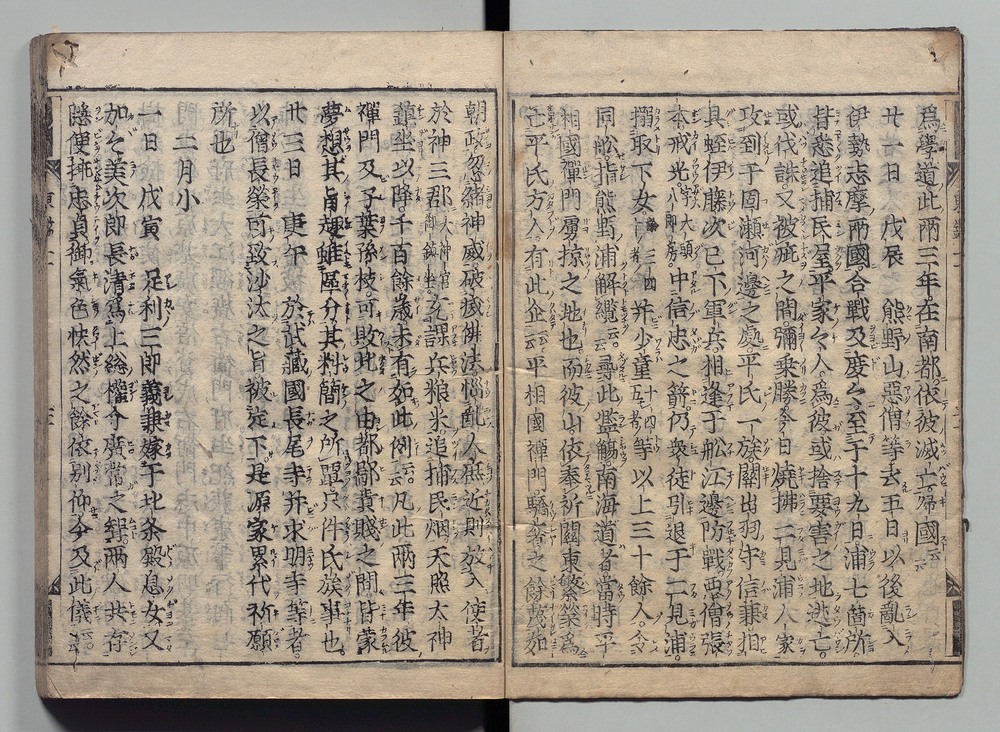 為學道此兩三年在南都依被滅亡帰國云云
廿一日 戊辰 熊野山惡僧等去五日以後亂入
伊勢志摩兩國合戰及度々至于十九日浦七箇所
皆悉追捕民屋平家々人為彼或捨要害之地逃亡
或伐誅又被疵之間彌乗勝今日燒拂二見浦人家
攻到于四瀬河邊之處平氏一族關出羽守信兼相
具蛭伊藤次已下軍兵相逢于舩江邊防戰惡僧張
本戒光字大頭八郎房中信忠之箭仍衆徒引退于二見浦
搦取下女三四十者并少童十四五者等以上三十餘人令
同舩指熊野浦解纜云云尋此濫觴南海道者當時平
相國禪門虜掠之地也而彼山依奉祈關東繁榮為
亡平氏方人有此企云云平相國禪門驕奢之餘蔑如
朝政忽緒神威破滅佛法惱亂人庶近則放入使者
於神三郡大神宮御鎮坐充課兵粮米追捕民烟天照太神
鎮坐以降千百餘歳未有如此例云云凡此兩三年彼
禪門及子葉孫枝可敗北之由都鄙貴賤之間皆蒙
夢想其旨趣雖區分其料簡之所覃只件氏族事也
廿三日 庚午 於武藏國長尾寺并求明寺等者
以僧長榮可致沙汰之旨被定下是源家累代祈願
所也
二月小
一日戊寅 足利三郎義兼嫁于北条殿息女又
加々美次郎長清為上総權介廣常之聟兩人共存
隱便挿忠貞御氣色快然之餘依別仰今及此儀云云